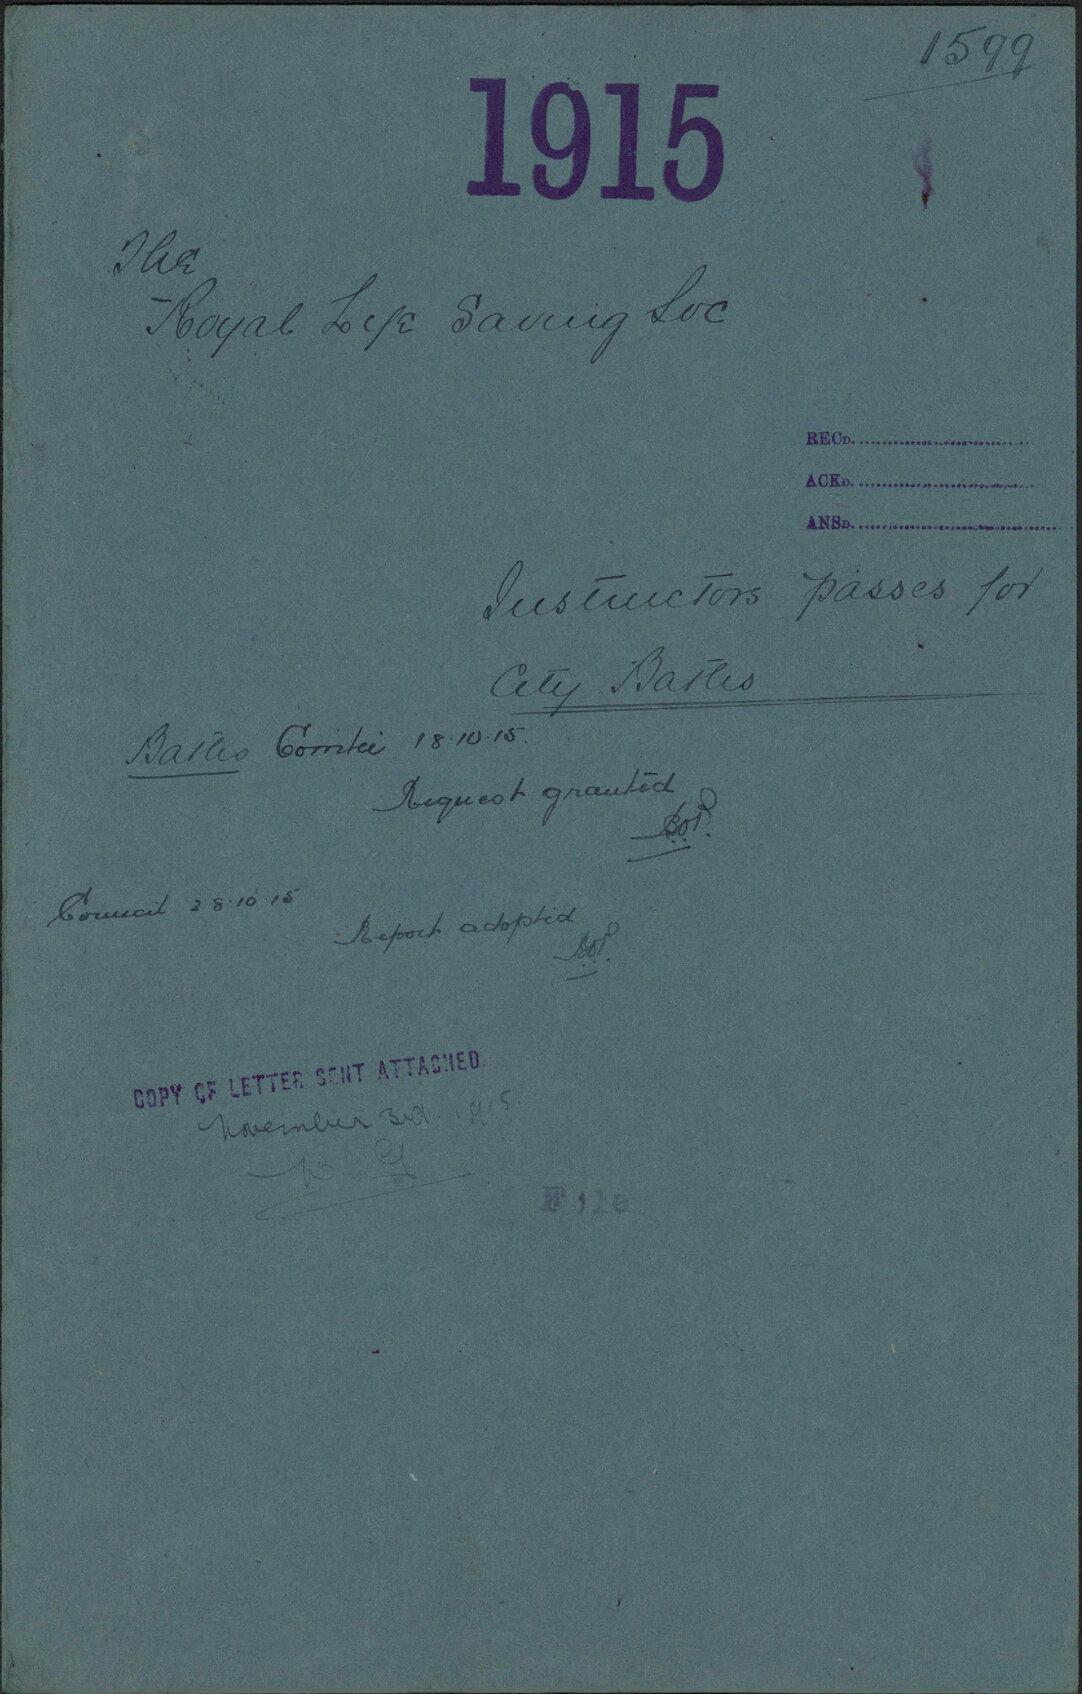 1599
1915
The
Royal Life Saving Soc
RECD.
ACKD.
ANSD.
Instructors passes for
City Baths
Baths Comtee 18.10.15.
Request granted
Council 28.10.15
Report adopted
COPY OF LETTER SENT ATTACHED.
November 3rd 1915.
File